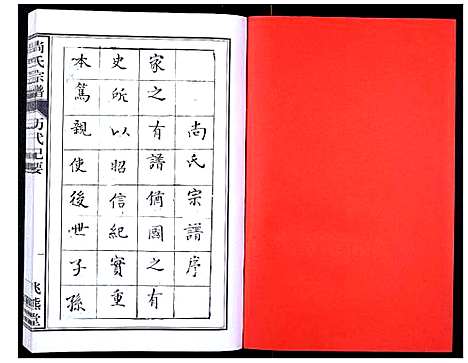 尚氏宗譜序
家之有譜猶國之有
史所以昭信紀實重
本篤親使後世子孫
尚氏宗譜
歷代紀要
一
飛熊堂